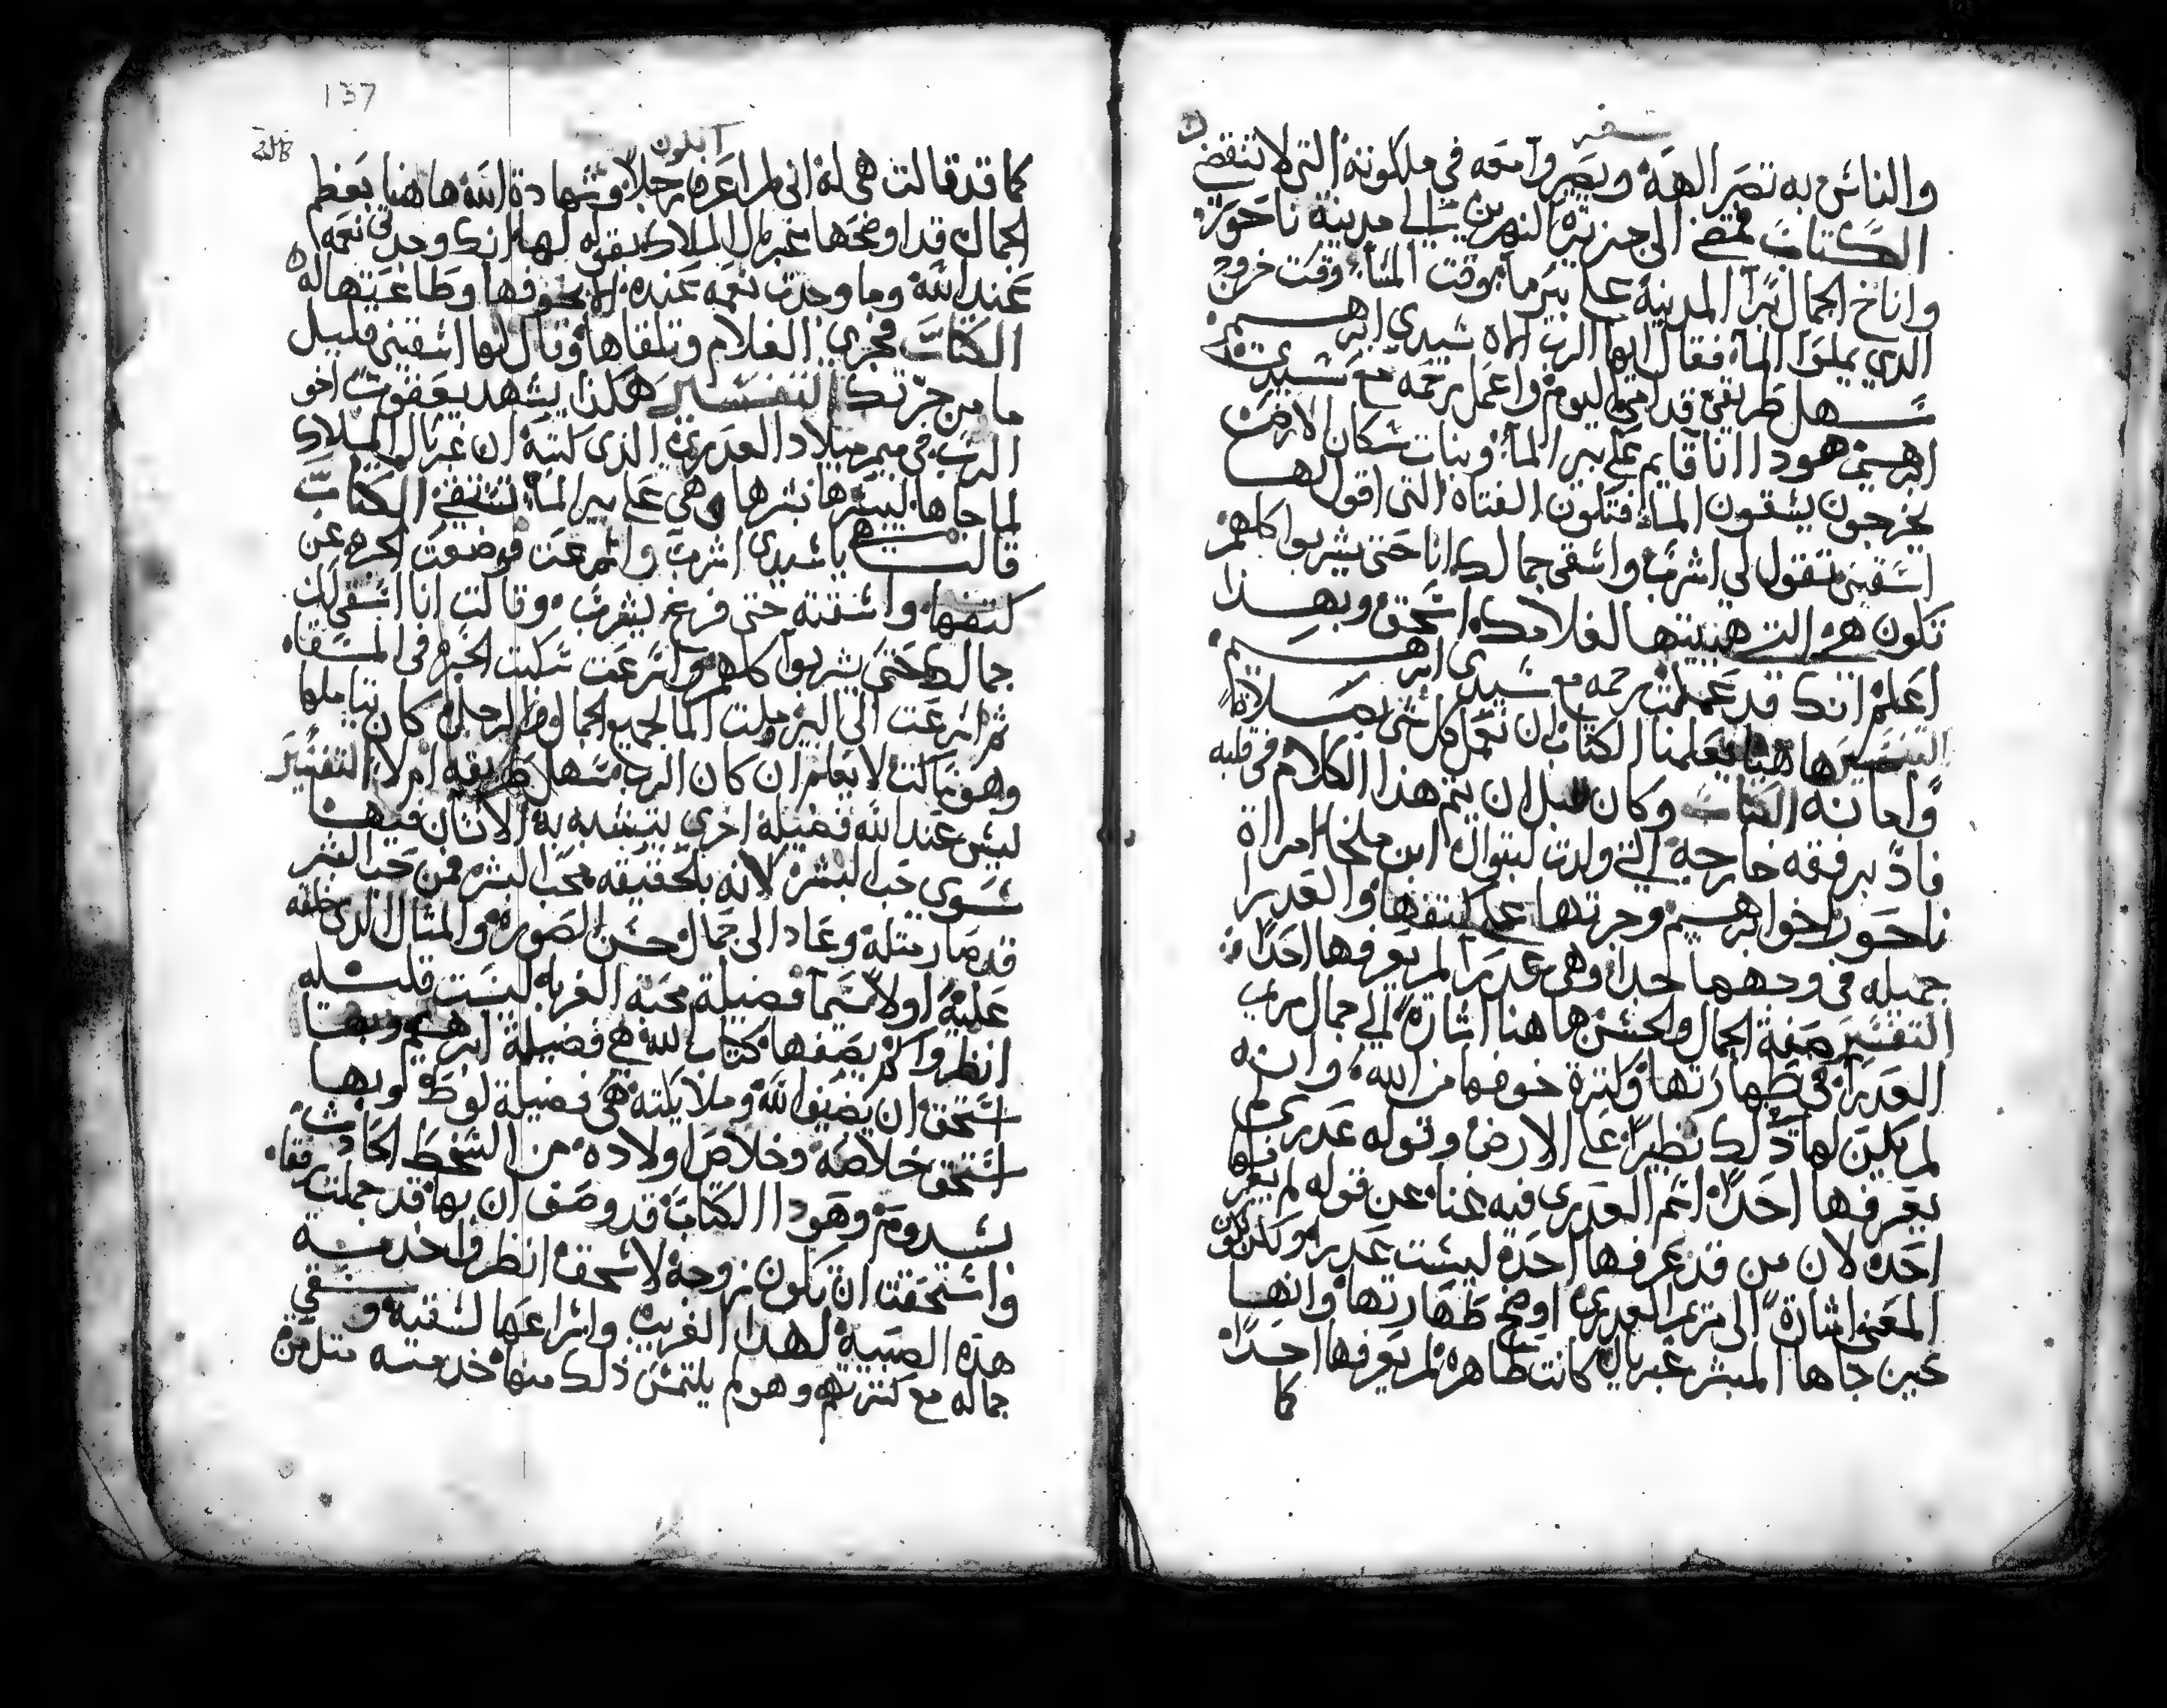 سفر
والناس به تصر الهة ويصروا معه في ملكوته التي لا تنقضي
الكتاب فمضى الى جزيرة النهرين الي مدينة ناحور
واناخ الجمال برا المدينة علي بير ما بوقت المسا وقت خروج
الذي يملوا الما فقال ايها الرب الاه سيدي ابرهيم
سهل طريقي قدامي اليوم واعمل رحمه مع سيدي
ابرهيم هودا انا قايم علي بير الما وبنات سكان الارض
يخرجون يسقون الما فتكون الفتاه التي اقول لها
اسقيني فتقول لي اشرب واسقي جمالك انا حتى يشربوا كلهم
تكون هي التي هيبيتها لغلامك اسحق وبهذا
اعلم انك قد عملت رحمه مع سيدي ابرهيم
التفسير هاهنا يعلمنا الكتاب ان نعمل كل شي بصلاة
وامانه الكتاب وكان قبل ان يتم هذا الكلام في قلبه
فاذ برفقه خارجه التي ولدت لبتوال ابن ملخا امراة
ناحور اخو ابرهيم وجرتها علي كتفها والعدرا
جميله في وجهها جدا وهي عدرا لم يعرفها احدا
التفسير صفة الجمال والحسن هاهنا اشارة الي جمال مريم
العدرا في طهارتها وكثرة خوفها من الله وانه
لم يكن لها ذلك نظيرا علي الارض وقوله عدري لم
يعرفها احدا اسم العدري فيه غنا عن قوله لم يعرفها
احد لان من قد عرفها احد ليست عدرا ولكن تكون
المعنى اشارة الى مريم العدري اوضح طهارتها وانها
حين جاها المبشر غبريال كانت طاهره لم يعرفها احدا
كما
137
اتكون
كما قد قالت هي له اني لم اعرف رجلا وشهادة الله هاهنا بعظم
الجمال قد اوضحها غبريال الملاك بقوله لها انك وجدتي نعمه
عند الله وما وجدت نعمه عنده الا بخوفها وطاعتها له
الكتاب فجرى الغلام وتلقاها وقال لها اسقيني قليل
ما من جرتك التفسير هكذا يشهد يعقوب اخو
الرب في ميمر ميلاد العدري الذي كتبه ان غبريال الملاك
لما جاها ليبشرها بشرها وهي علي بير الما تستقي الكتاب
قالت هي ياسيدي اشرب واسرعت فوضعت الجره عن
كتفها واسقته حتى فرغ يشرب وقالت انا اسقي لك
جمالك حتى يشربوا كلهم واسرعت سكبت الجره في المسقا
ثم اسرعت الي البير وملت الما لجميع الجمال والرجل كان يتاملها
وهو ساكت لا يعلم ان كان الرب سهل طريقه ام لا التفسير
ليس عند الله فضيلة اخري يتشبه به الانسان فيها
سوي حب البشر لانه بالحقيقه محب البشر فمن حب البشر
قد صار مثله وعاد الى جمال حسن الصورة والمثال الذي خلقه
عليه اولا سيما فضيلة محبة الغربا ليست قليله
انظروا كم يصفها كتاب الله هي فضيلة ابرهيم وبها
استحق ان يضيف الله وملايكته هي فضيلة لوط وبها
استحق خلاصه وخلاص اولاده من السخط الحادث
بسدوم وهودا الكتاب قد وصف ان بها قد جملت رفقا
واستحقت ان تكون زوجة لاسحق انظروا خدمة
هذه الصبية لهدا الغريب واسراعها لتسقيه وتسقي
جماله مع كثرتهم وهو لم يلتمس ذلك منها خدمته مثل من